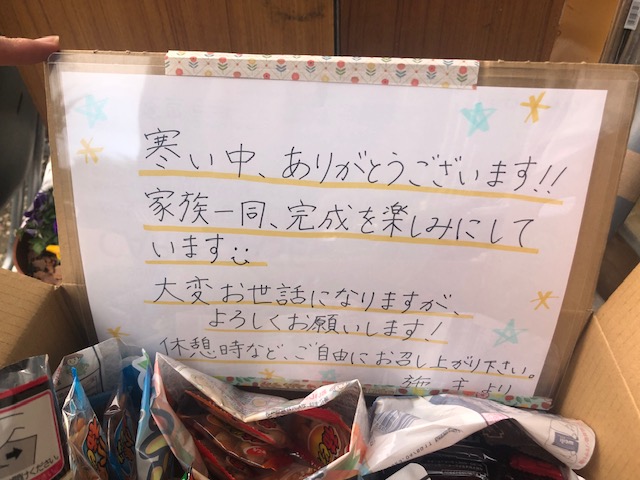 寒い中、ありがとうございます!!
家族一同、完成を楽しみにして
います
大変お世話になりますが、
よろしくお願いします!
休憩時など、ご自由にお召し上がり下さい。
施主より